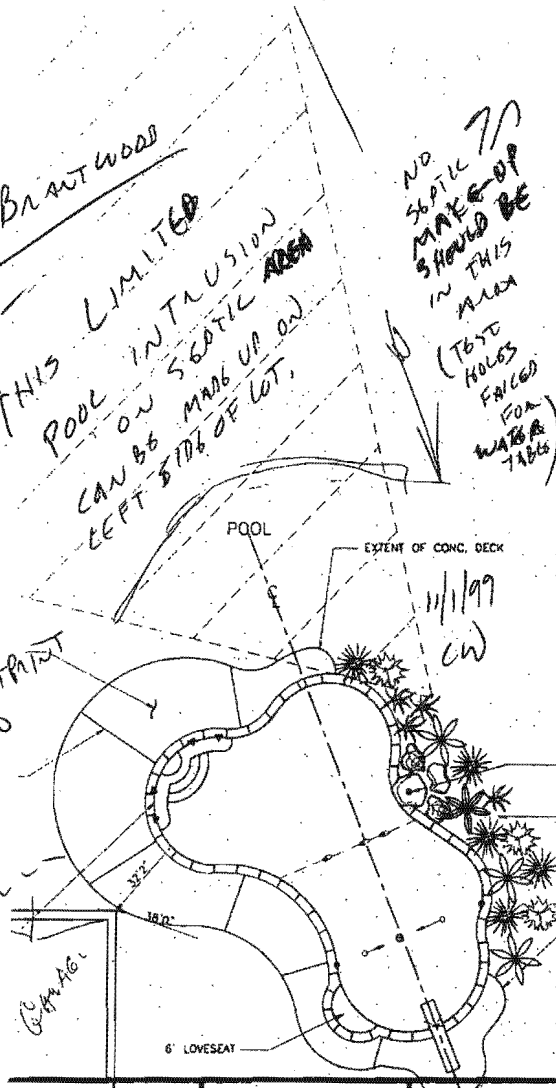 BRANTWOOD
THIS LIMITED
POOL INTRUSION
ON SEPTIC AREA
CAN BE MADE UP ON
LEFT SIDE OF LOT.
NO
SEPTIC
MAKE-UP
SHOULD BE
IN THIS
AREA
(TEST
HOLES
FAILED
FOR
WATER
TABLE)
POOL
EXTENT OF CONC. DECK
11/1/99
CW
GARAGE
6' LOVESEAT